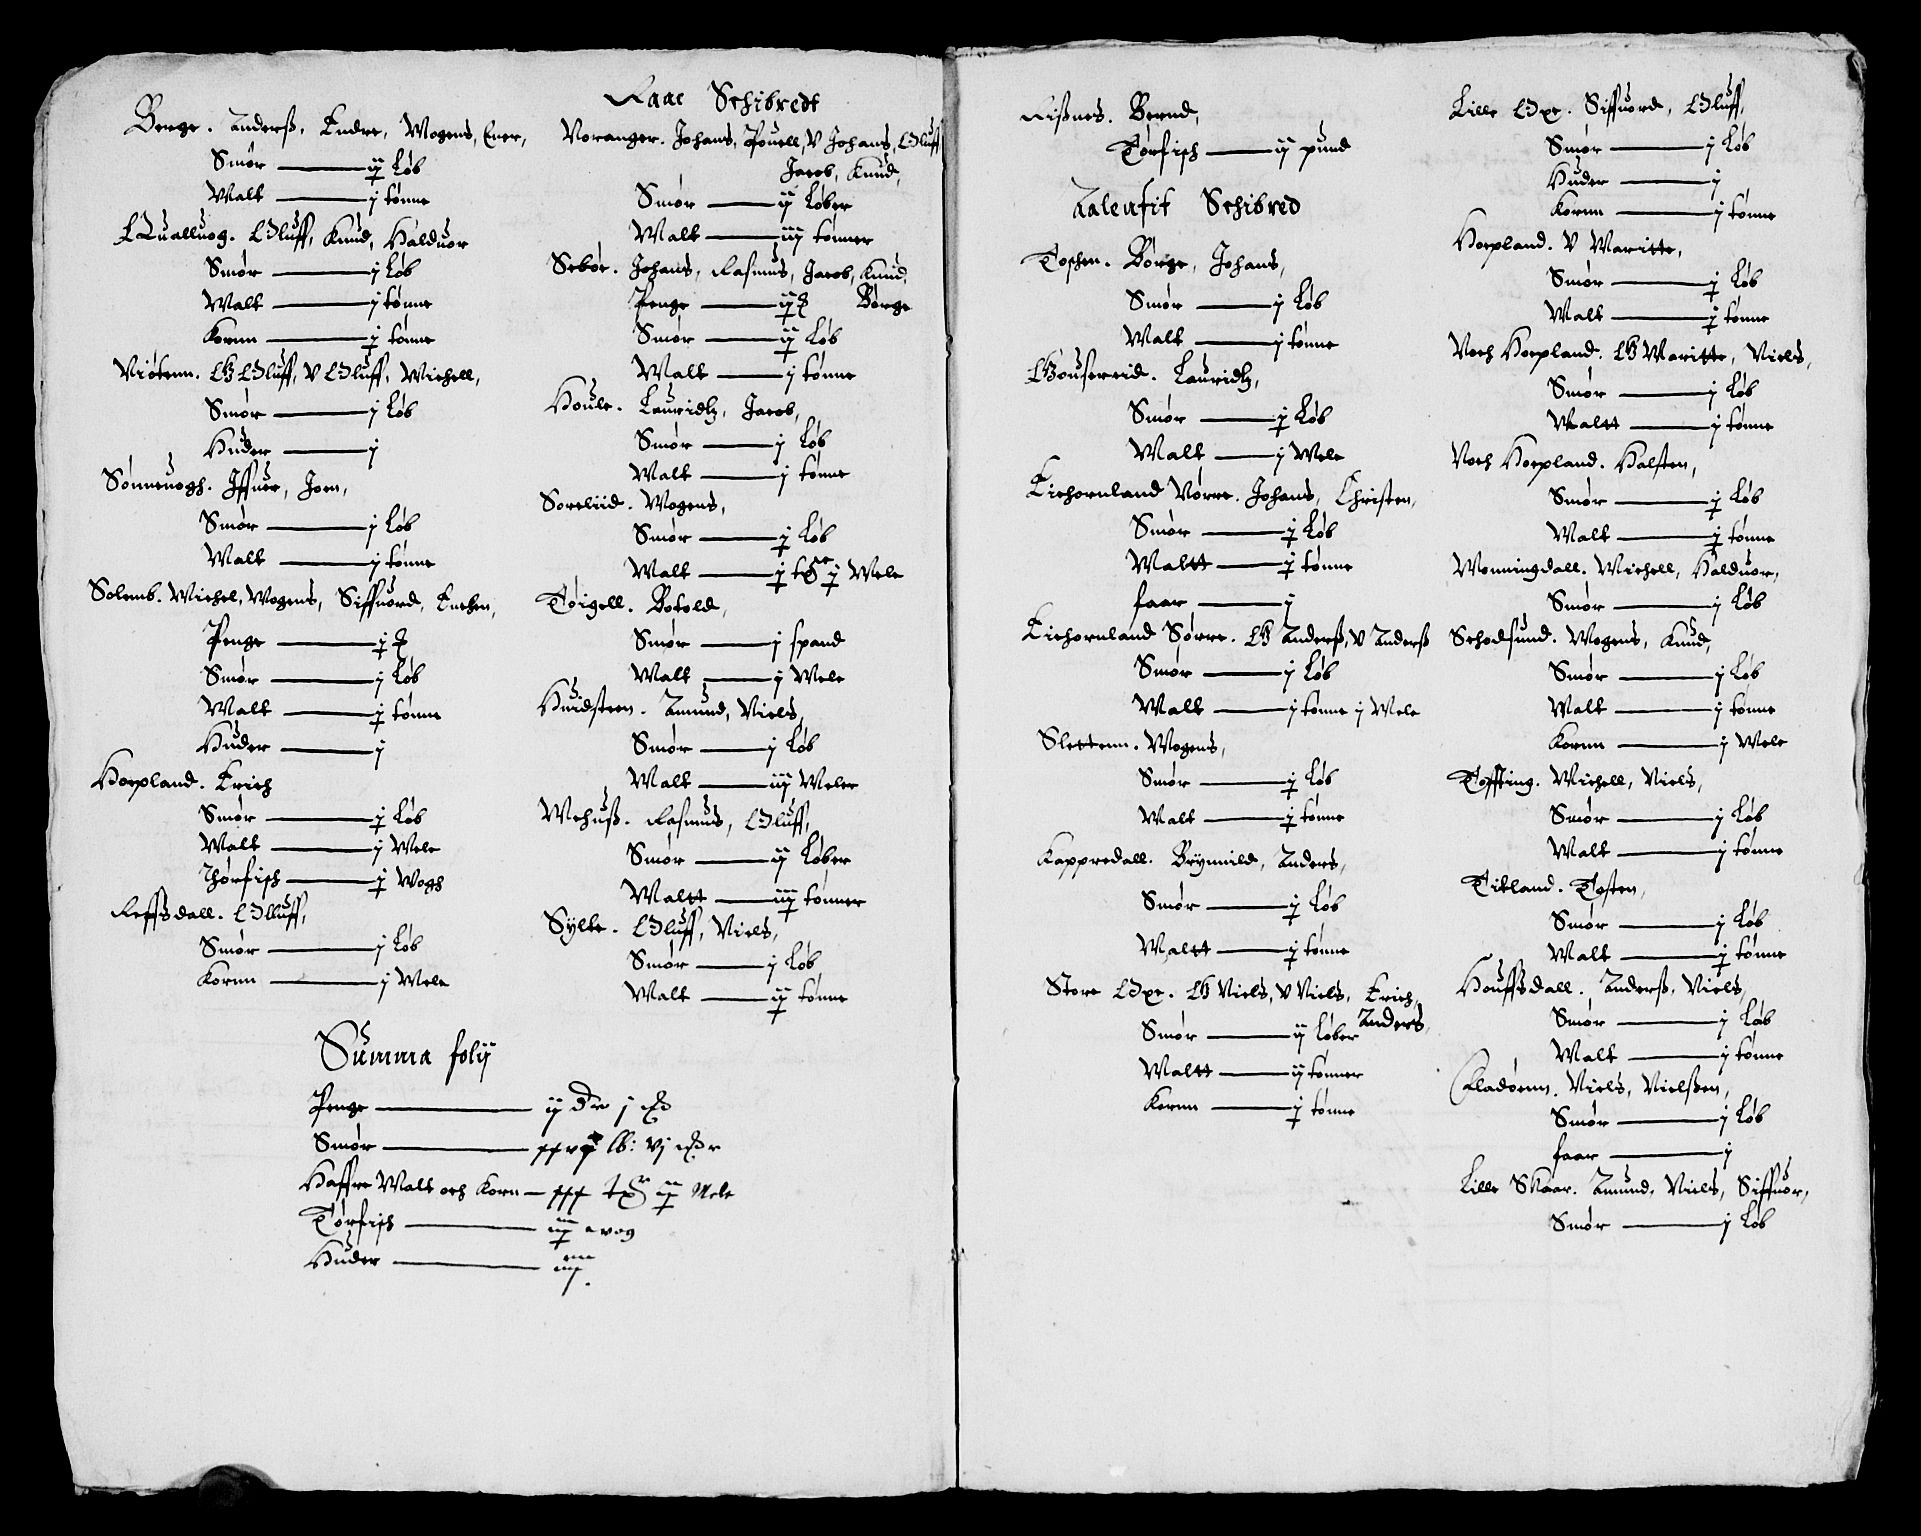 Berge. Anderß, Endre, Mogens, Ener,
Smør ij Løb
Malt j tønne
Qualluog. Oluff, Knud, Halduor
Smør j Løb
Malt j tønne
Kornn j tønne
Niøtenn. G Oluff, V Oluff, Michell,
Smør j Løb
Huder j
Sønneuogh. Iffuer, Joen,
Smør j Løb
Malt j tønne
Solemb. Michel, Mogens, Siffuord, Enchen,
Penge j
Smør j Løb
Malt j tønne
Huder j
Hopland. Erich
Smør j Løb
Malt j Mele
Thørfisch j Wogh
Reffsdall. Olluff,
Smør j Løb
Kornn j Mele
Summa folij
Penge ij j
Smør
Haffre Malt och Korn Mele
Tørfisch wog
Huder
Schibredt
Voranger. Johans, Pouell, V Johans, Oluff
Jacob, Knud,
Smør ij Løber
Malt iij tønner
Sebøe. Johans, Rasmus, Jacob, Knud,
Penge ij Børge
Smør ij Løb
Malt j tønne
Houle. Lauridtz, Jacob,
Smør j Løb
Malt j tønne
Soreliid. Mogens,
Smør j Løb
Malt j j Mele
Tøigell. Botold,
Smør j spand
Malt j Mele
Huidsteen. Amund, Niels,
Smør j Løb
Malt iij Meler
Mehuß. Rasmus, Oluff,
Smør ij Løber
Maltt iiij tønner
Sylte. Oluff, Niels,
Smør j Løb
Malt ij tønne
Rißnes. Bernd,
Tørfisch ij pund
Schibred
Toschen. Børge, Johans,
Smør j Løb
Malt j tønne
Gousereid. Lauridtz,
Smør j Løb
Malt j Mele
Eichornland Nørre. Johans, Christen,
Smør j Løb
Maltt j tønne
faar j
Eichornland Sørre. G Anderß, V Anderß
Smør j Løb
Malt j tønne j Mele
Slettenn. Mogens,
Smør j Løb
Malt j tønne
Kappredall. Brynnild, Anders,
Smør j Løb
Maltt j tønne
Store Oxe. G Niels, V Niels, Erich,
Anders,
Smør ij Løber
Maltt ij tønner
Kornn j tønne
Lille Oxe. Siffuord, Oluff,
Smør j Løb
Huder j
Kornn j tønne
Hopland. V Maritte,
Smør j Løb
Malt j tønne
Noch Hopland. G Maritte, Niels,
Smør j Løb
Maltt j tønne
Noch Hopland. Halsten,
Smør j Løb
Malt j tønne
Monningdall. Michell, Halduor,
Smør j Løb
Schodsund. Mogens, Knud,
Smør j Løb
Malt j tønne
Kornn j Mele
Toffting. Michell, Niels,
Smør j Løb
Malt j tønne
Titland. Tosten,
Smør j Løb
Malt j tønne
Houffsdall. Anderß, Niels,
Smør j Løb
Malt j tønne
Fladøenn. Niels, Nielßen,
Smør j Løb
faar j
Lille Skaar. Amund, Niels, Siffuor,
Smør j Løb